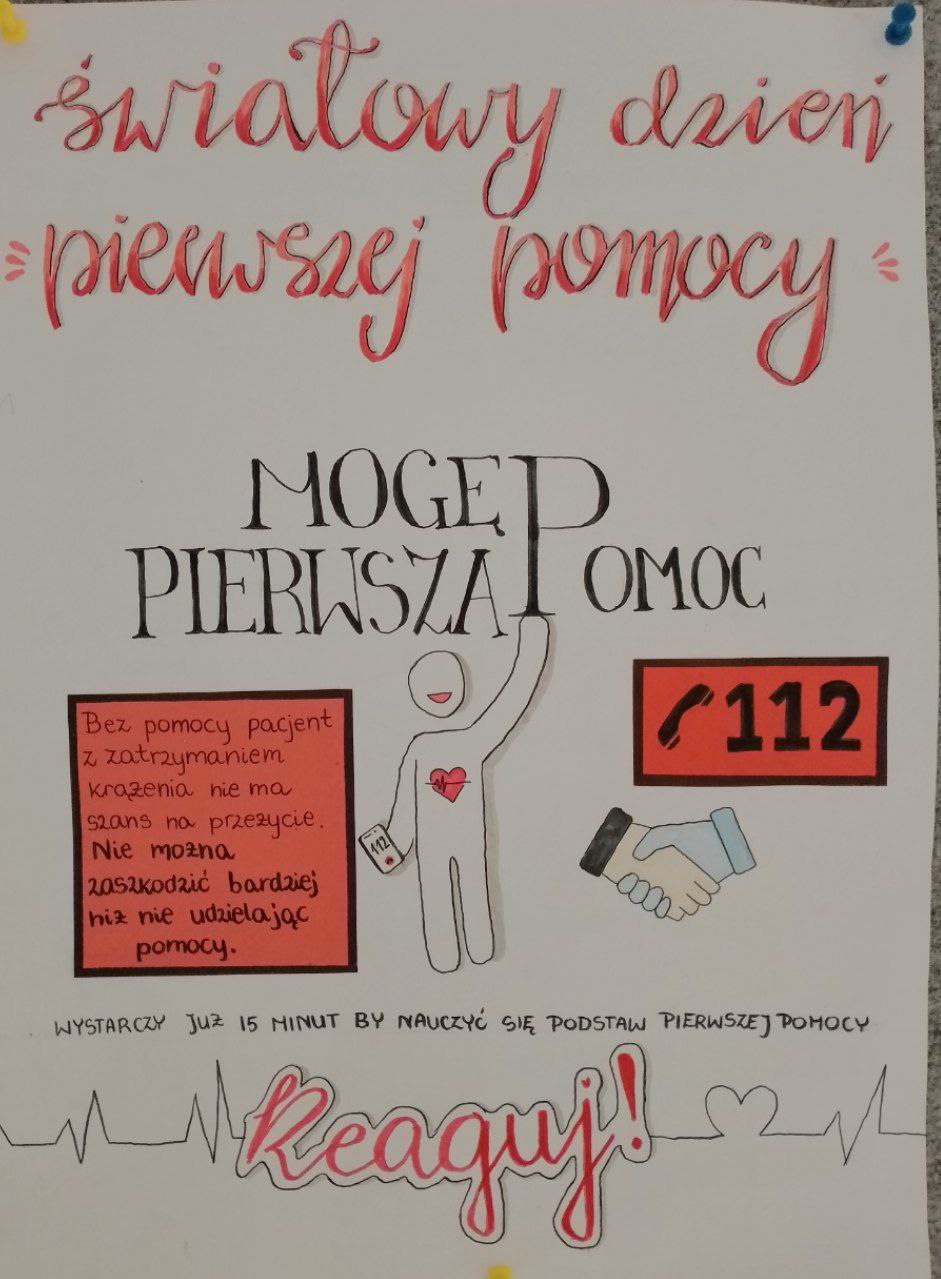 światowy dzień
pierwszej pomocy
MOGĘ
PIERWSZA POMOC
Bez pomocy pacjent
z zatrzymaniem
krążenia nie ma
szans na przeżycie.
Nie można
zaszkodzić bardziej
niż nie udzielając
pomocy.
112
112
WYSTARCZY JUŻ 15 MINUT BY NAUCZYĆ SIĘ PODSTAW PIERWSZEJ POMOCY
Reaguj!